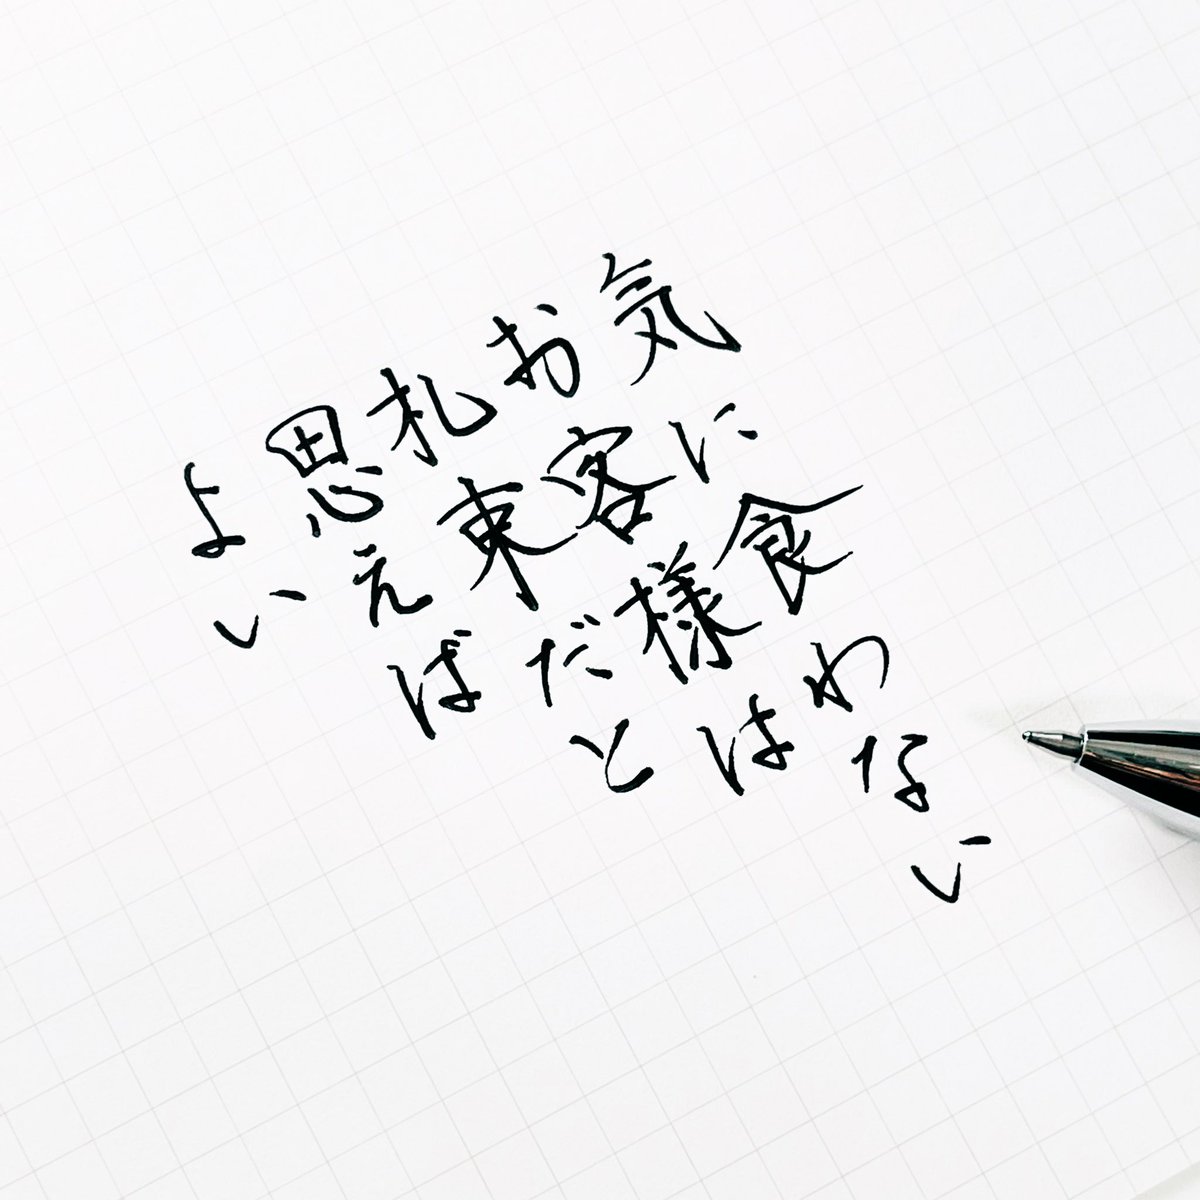 気に食わない
お客様は
札束だと
思えば
よい